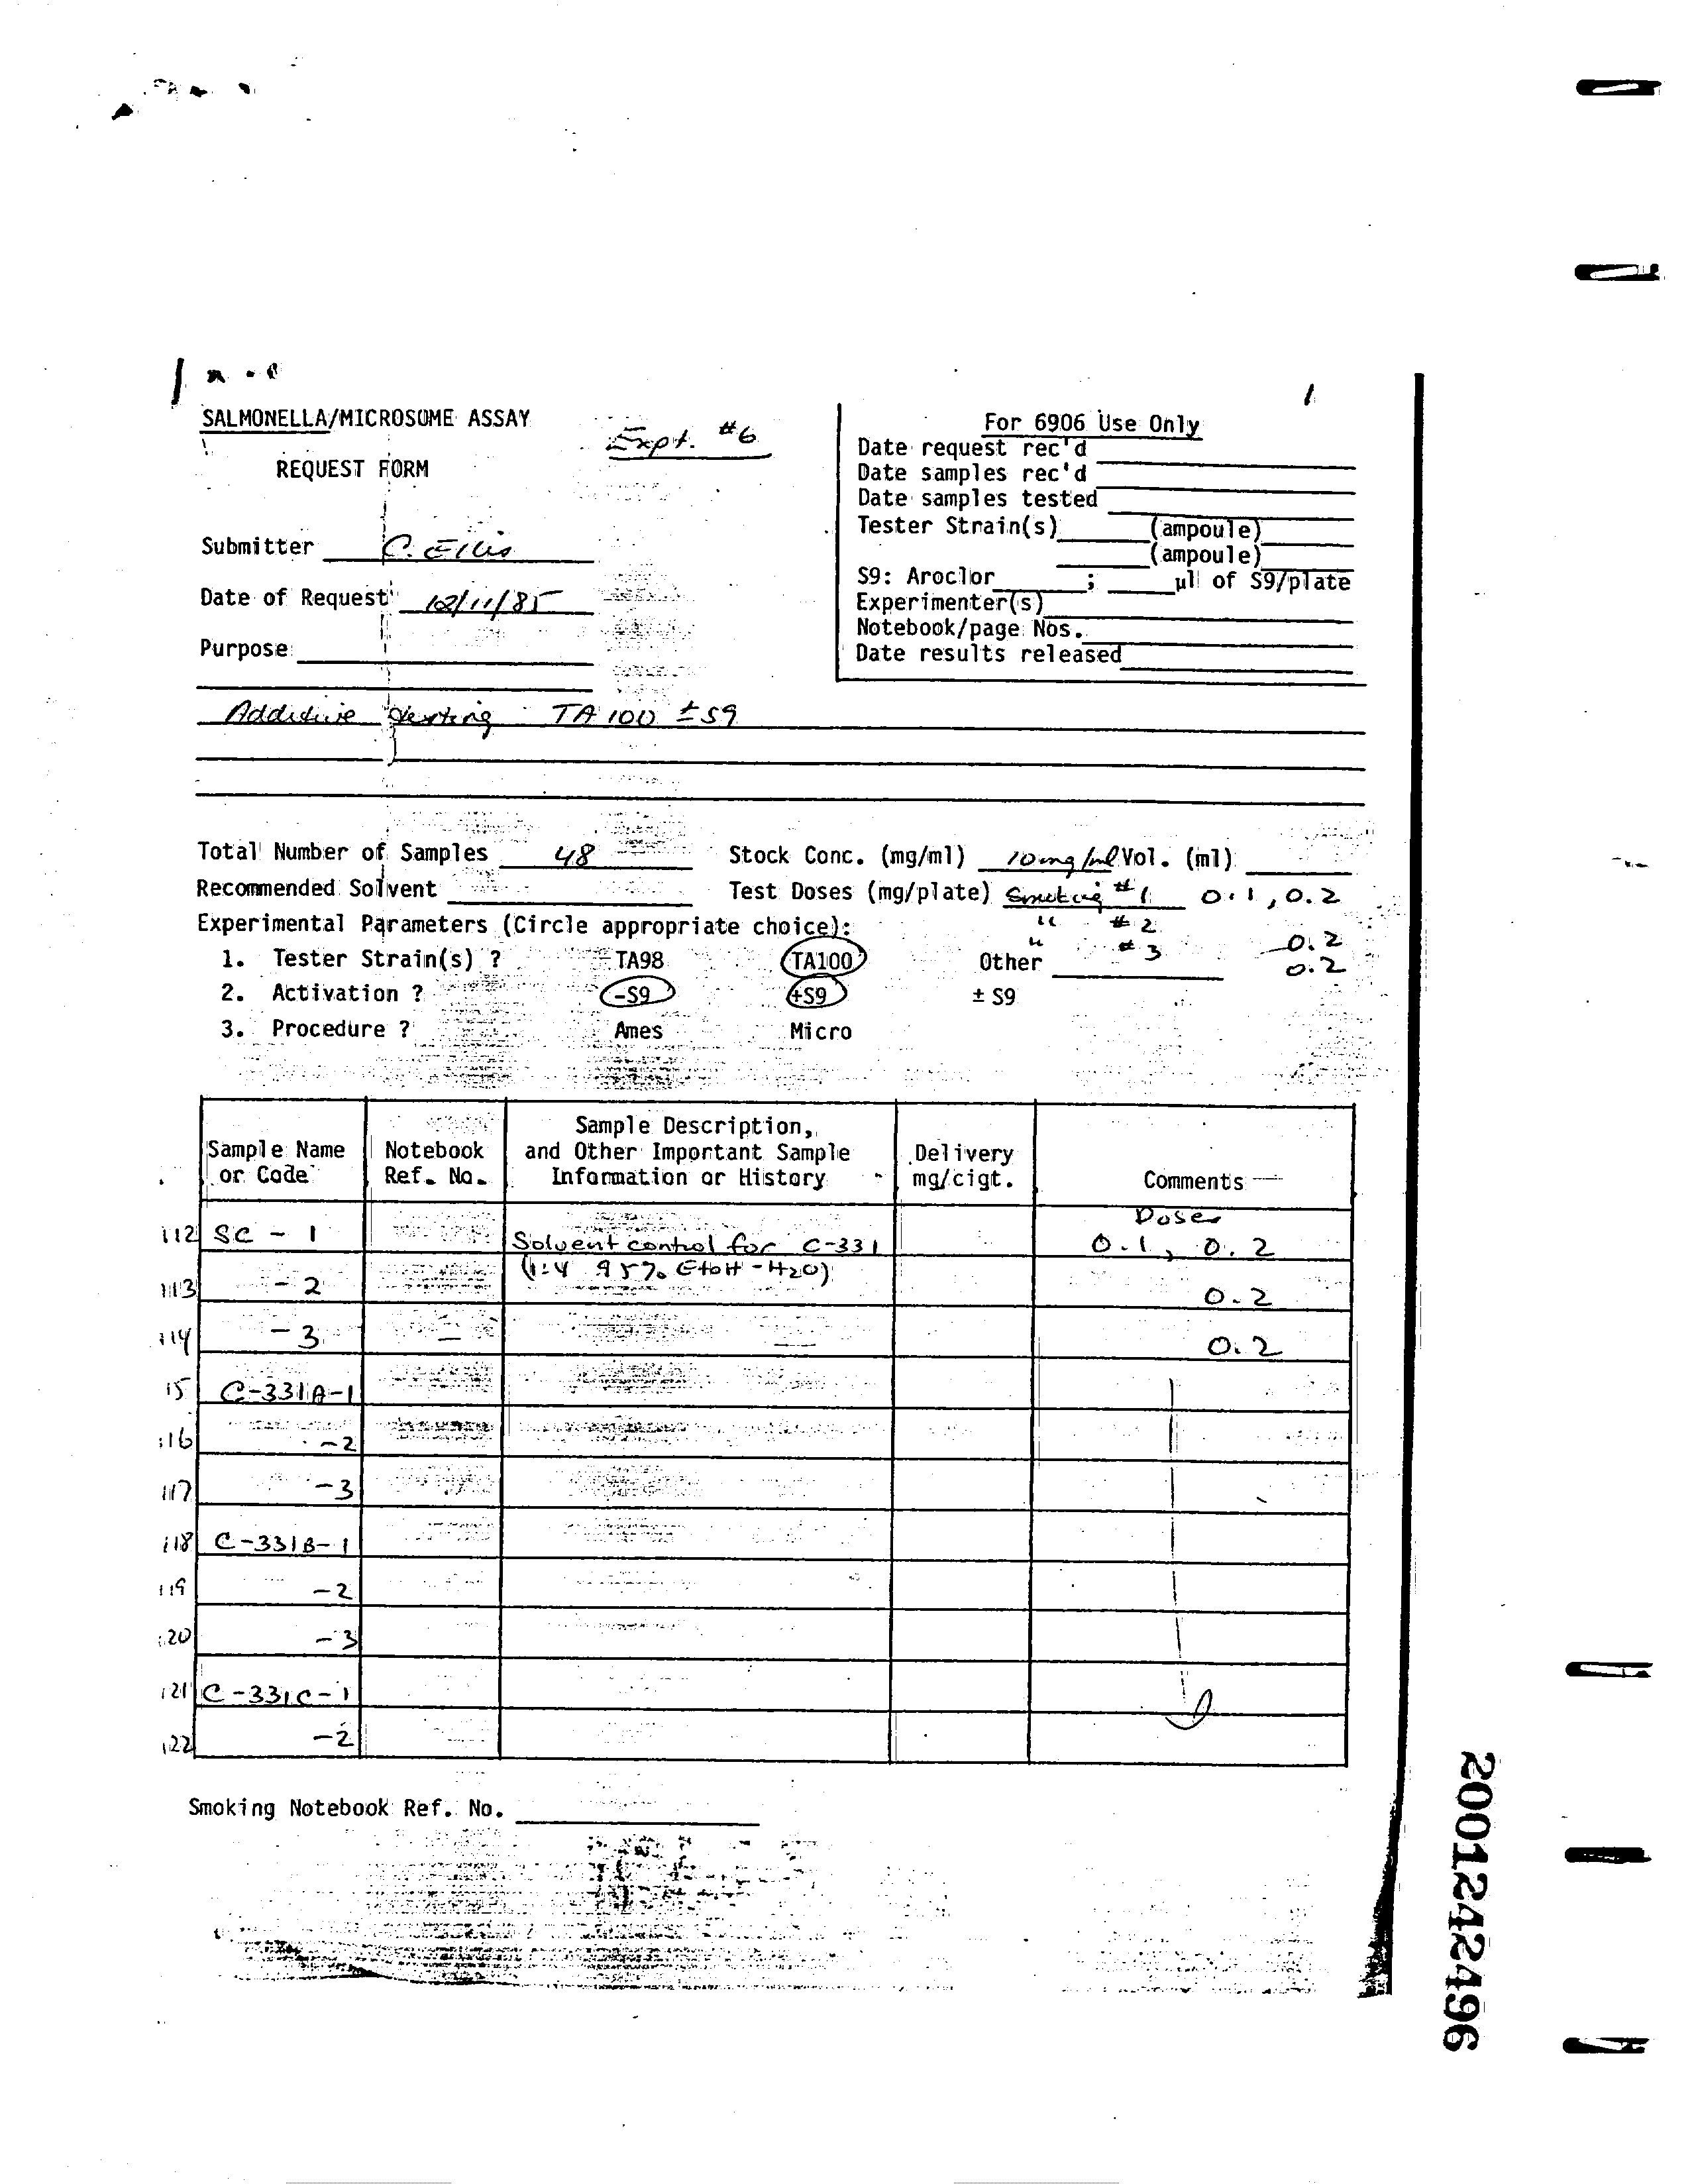 SALMONELLA/MICROSOME ASSAY
REQUEST FORM
Expt. #6
Submitter C. Ellis
Date of Request 12/11/85
Purpose
For 6906 Use Only
Date request rec'd
Date samples rec'd
Date samples tested
Tester Strain(s) (ampoule)
(ampoule)
S9: Aroclor ; µl of S9/plate
Experimenter(s)
Notebook/page Nos.
Date results released
Additive testing TA 100 ± S9
Total Number of Samples 48 Stock Conc. (mg/ml) 10 mg/ml Vol. (ml)
Recommended Solvent Test Doses (mg/plate) Smoking #1 0.1, 0.2
Experimental Parameters (Circle appropriate choice): " #2 0.2
" #3 0.2
1. Tester Strain(s) ? TA98 TA100 Other
2. Activation ? -S9 +S9 ± S9
3. Procedure ? Ames Micro
Sample Name or Code Notebook Ref. No. Sample Description, and Other Important Sample Information or History Delivery mg/cigt. Comments
Doses
112 SC - 1 Solvent control for C-331 0.1, 0.2
(1:4 95% EtOH - H2O)
113 - 2 0.2
114 - 3 0.2
15 C-331A-1
116 -2
117 -3
118 C-331B-1
119 -2
120 -3
121 C-331C-1
122 -2
Smoking Notebook Ref. No.
2001242496